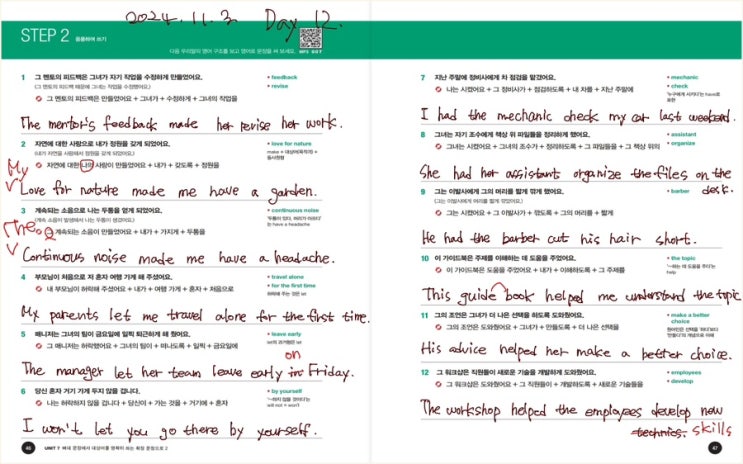 2024. 11. 3 Day 12.
STEP 2 응용하여 쓰기
다음 우리말의 영어 구조를 보고 영어로 문장을 써 보세요. MP3 007
1 그 멘토의 피드백은 그녀가 자기 작업을 수정하게 만들었어요.
(그 멘토의 피드백 때문에 그녀는 작업을 수정했어요.)
그 멘토의 피드백은 만들었어요 + 그녀가 + 수정하게 + 그녀의 작업을
• feedback
• revise
The mentor's feedback made her revise her work.
2 자연에 대한 사랑으로 내가 정원을 갖게 되었어요.
(내가 자연을 사랑해서 정원을 갖게 되었어요.)
자연에 대한 나의 사랑이 만들었어요 + 내가 + 갖도록 + 정원을
• love for nature
make + 대상(목적격) + 동사원형
My
Love for nature made me have a garden.
3 계속되는 소음으로 나는 두통을 얻게 되었어요.
(계속 소음이 발생해서 나는 두통이 생겼어요.)
그 계속되는 소음이 만들었어요 + 내가 + 가지게 + 두통을
• continuous noise
'두통이 있다, 머리가 아프다'는 have a headache
The
Continuous noise made me have a headache.
4 부모님이 처음으로 저 혼자 여행 가게 해 주셨어요.
내 부모님이 허락해 주셨어요 + 내가 + 여행 가게 + 혼자 + 처음으로
• travel alone
• for the first time
허락해 주는 것은 let
My parents let me travel alone for the first time.
5 매니저는 그녀의 팀이 금요일에 일찍 퇴근하게 해 줬어요.
그 매니저는 허락했어요 + 그녀의 팀이 + 떠나도록 + 일찍 + 금요일에
• leave early
let의 과거형은 let
on
The manager let her team leave early in Friday.
6 당신 혼자 거기 가게 두지 않을 겁니다.
나는 허락하지 않을 겁니다 + 당신이 + 가는 것을 + 거기에 + 혼자
• by yourself
'~하지 않을 것이다'는 will not = won't
I won't let you go there by yourself.
46 UNIT 7 뼈대 문장에서 대상어를 명확히 하는 확장 문장으로 2
7 지난 주말에 정비사에게 차 점검을 맡겼어요.
나는 시켰어요 + 그 정비사가 + 점검하도록 + 내 차를 + 지난 주말에
• mechanic
• check
'누구에게 시키다'는 have로 표현
I had the mechanic check my car last weekend.
8 그녀는 자기 조수에게 책상 위 파일들을 정리하게 했어요.
그녀는 시켰어요 + 그녀의 조수가 + 정리하도록 + 그 파일들을 + 그 책상 위의
• assistant
• organize
She had her assistant organize the files on the
desk.
9 그는 이발사에게 그의 머리를 짧게 깎게 했어요.
(그는 이발사에게 머리를 짧게 깎았어요.)
그는 시켰어요 + 그 이발사가 + 깎도록 + 그의 머리를 + 짧게
• barber
He had the barber cut his hair short.
10 이 가이드북은 주제를 이해하는 데 도움을 주었어요.
이 가이드북은 도움을 주었어요 + 내가 + 이해하도록 + 그 주제를
• the topic
'~하는 데 도움을 주다'는 help
This guide book helped me understand the topic
11 그의 조언은 그녀가 더 나은 선택을 하도록 도와줬어요.
그의 조언은 도와줬어요 + 그녀가 + 만들도록 + 더 나은 선택을
• make a better choice
His advice helped her make a better choice.
12 그 워크샵은 직원들이 새로운 기술을 개발하게 도와줬어요.
그 워크샵은 도와줬어요 + 그 직원들이 + 개발하도록 + 새로운 기술들을
• employees
• develop
The workshop helped the employees develop new
technics. skills
47